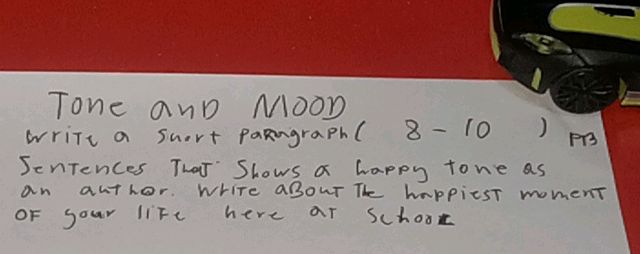 Tone and MOOD
write a short paragraph ( 8 - 10 )
Sentences That Shows a happy tone as
an author. write about The happiest moment
OF your life here at school